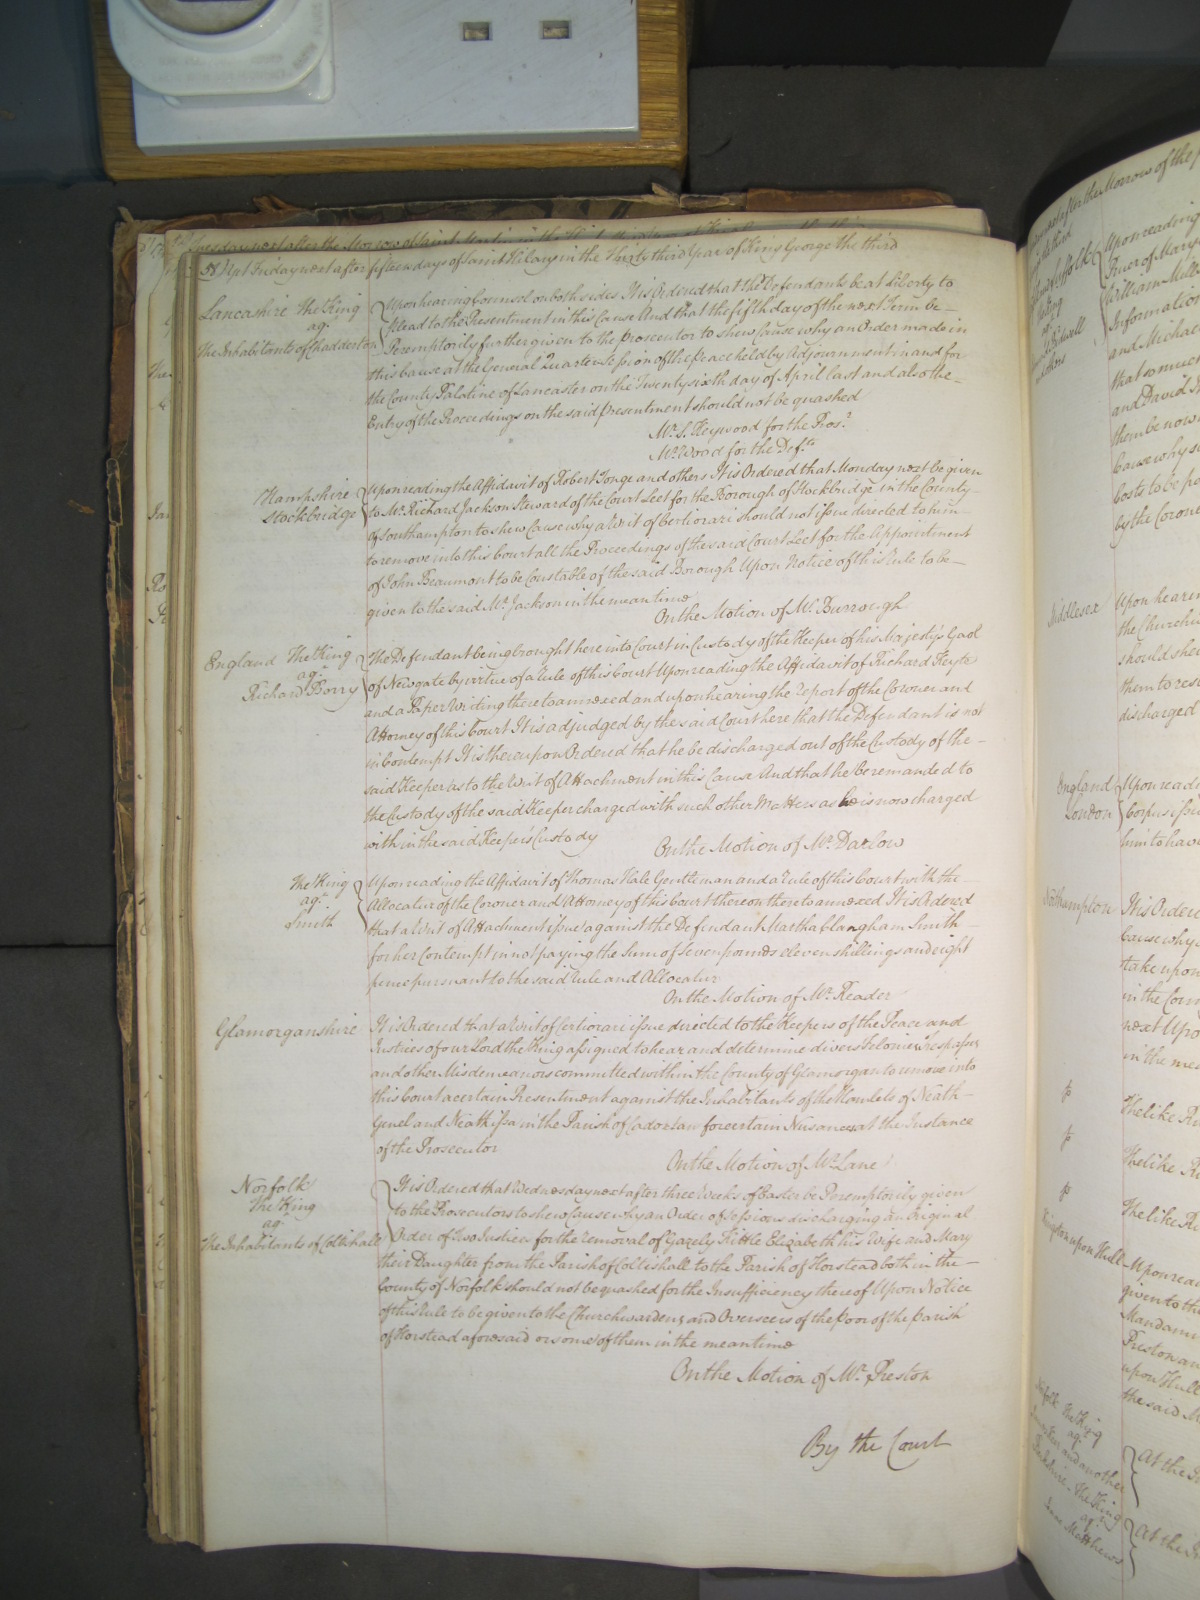 58 Yet Friday next after fifteen days of Saint Hilary in the Thirty third Year of King George the third
Lancashire The King
agt.
The Inhabitants of Chadderton
Upon hearing Counsel on both sides It is Ordered that the Defendants be at Liberty to
plead to the Presentment in this Cause And that the fifth day of the next Term be
Peremptorily further given to the prosecutor to shew Cause why an Order made in
this Cause at the General Quarter Session of the Peace held by Adjournment in and for
the County Palatine of Lancaster on the Twenty sixth day of April last and also the
Entry of the Proceedings on the said presentment should not be quashed
Mr. S. Heywood for the Pros.r
Mr. Wood for the Def.ts
Hampshire
Stockbridge
Upon reading the Affidavit of Robert Tonge and others It is Ordered that Monday next be given
to Mr. Richard Jackson Steward of the Court Leet for the Borough of Stockbridge in the County
of Southampton to shew Cause why a Writ of Certiorari should not issue directed to him
to remove into this Court all the Proceedings of the said Court Leet for the Appointment
of John Beaumont to be Constable of the said Borough Upon Notice of this Rule to be
given to the said Mr. Jackson in the mean time
On the Motion of Mr. Burrough
England The King
agt.
Richard Borry
The Defendant being brought here into Court in Custody of the Keeper of his Majesty's Gaol
of Newgate by virtue of a Rule of this Court Upon reading the Affidavit of Richard Heyte
and a Paper Writing thereto annexed and upon hearing the report of the Coroner and
Attorney of this Court It is adjudged by the said Court here that the Defendant is not
in Contempt It is thereupon Ordered that he be discharged out of the Custody of the
said Keeper as to the Writ of Attachment in this Cause And that he be remanded to
the Custody of the said Keeper charged with such other Matters as he is now charged
with in the said Keeper's Custody
On the Motion of Mr. Darlow
The King
agt.
Smith
Upon reading the Affidavit of Thomas Hale Gentleman and a Rule of this Court with the
Allocatur of the Coroner and Attorney of this Court thereon thereto annexed It is Ordered
that a Writ of Attachment issue against the Defendant Martha Clangham Smith
for her Contempt in not paying the Sum of seven pounds eleven shillings and eight
pence pursuant to the said Rule and Allocatur
On the Motion of Mr. Reader
Glamorganshire
It is Ordered that a Writ of Certiorari issue directed to the Keepers of the Peace and
Justices of our Lord the King assigned to hear and determine divers Felonies Trespasses
and other Misdemeanors committed within the County of Glamorgan to remove into
this Court a certain Presentment against the Inhabitants of the Hamlets of Neath
Genel and Neath issa in the Parish of Cadoxtan for certain Nusances at the Instance
of the Prosecutor
On the Motion of Mr. Lane
Norfolk
The King
agt.
The Inhabitants of Coltishall
It is Ordered that Wednesday next after three Weeks of Easter be Peremptorily given
to the Prosecutors to shew Cause why an Order of Sessions discharging an Original
Order of Two Justices for the removal of Gazely Kittle Elizabeth his Wife and Mary
their Daughter from the Parish of Coltishall to the Parish of Horstead both in the
County of Norfolk should not be quashed for the Insufficiency thereof Upon Notice
of this Rule to be given to the Churchwardens and Overseers of the Poor of the parish
of Horstead aforesaid or some of them in the mean time
On the Motion of Mr. Preston
By the Court
after the Morrow of the
Upon reading
William
Information
and Michael
that so much
and David
them be now
Cause why
Costs to be
by the Coroner
Middlesex
Upon hearing
the Church
should shew
them to
discharged
England
London
Upon readi
Corpus issu
him to hav
Northampton
It is Ordere
Cause why
take upon
in the
next Upon
in the me
The like
The like
The like
Kingston upon Hull
Upon rea
given to th
Mandamu
Preston an
upon Hull
the said
Norfolk The King
agt.
and another
At the
Berkshire The King
agt.
Matthews
At the